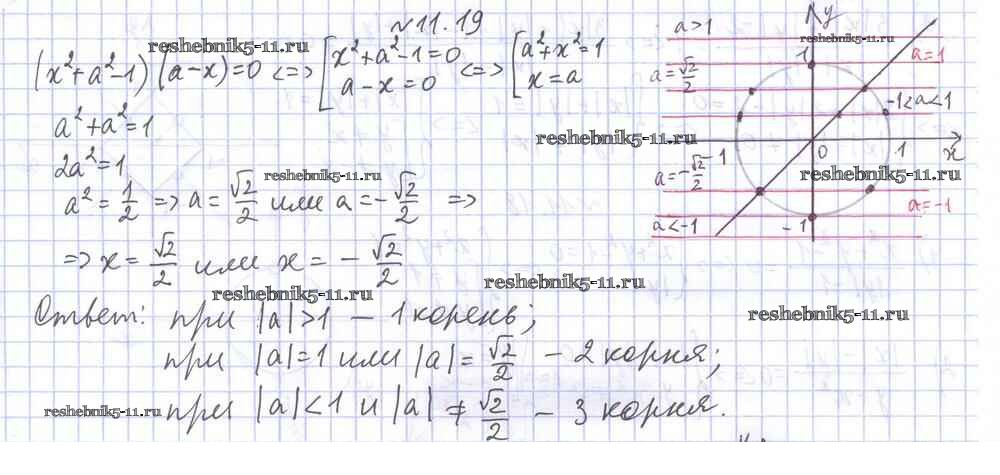 №11.19
(x²+a²-1)(a-x)=0 <=> [x²+a²-1=0 <=> [a²+x²=1
a-x=0 x=a
a²+a²=1
2a²=1
a²=1/2 => a=√2/2 или a=-√2/2 =>
=> x=√2/2 или x=-√2/2
Ответ: при |a|>1 - 1 корень;
при |a|=1 или |a|=√2/2 - 2 корня;
при |a|<1 и |a|≠√2/2 - 3 корня.
a>1
y
1
a=1
a=√2/2
-1<a<1
-1
0
1
x
a=-√2/2
a=-1
a<-1
-1
reshebnik5-11.ru
reshebnik5-11.ru
reshebnik5-11.ru
reshebnik5-11.ru
reshebnik5-11.ru
reshebnik5-11.ru
reshebnik5-11.ru
reshebnik5-11.ru
reshebnik5-11.ru